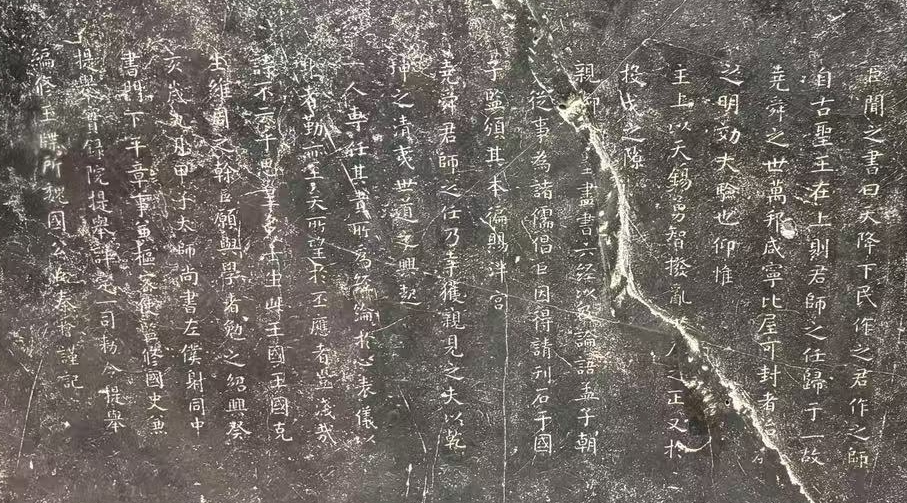 臣聞之書曰天降下民作之君作之師
自古聖王在上則君師之任歸于一故
堯舜之世萬邦咸寧比屋可封者
之明効大驗也仰惟
主上以天錫勇智撥亂 之正又於
投戈之隙
親 盡書六經以及論語孟子朝
從事為諸儒倡臣因得請刊石于國
子監頒其本徧賜泮宮
堯舜君師之任乃幸獲親見之夫以乾
之清夷世道之興起
一人專任其責所爲經綸於心表儀以
者勤而至矣所望於丕應者豈淺哉
詩不云乎思皇多士生此王國王國克
生維周之幹臣願與學者勉之紹興癸
亥歲 甲子太師尚書左僕射同中
書門下平章事兼樞密使監修國史兼
提舉實録院提舉詳定一司勑令提舉
編修玉牒所 國公臣秦檜謹記